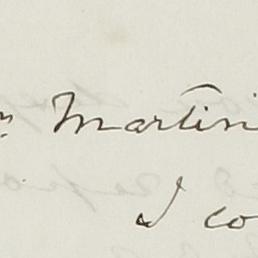 Martin
I co